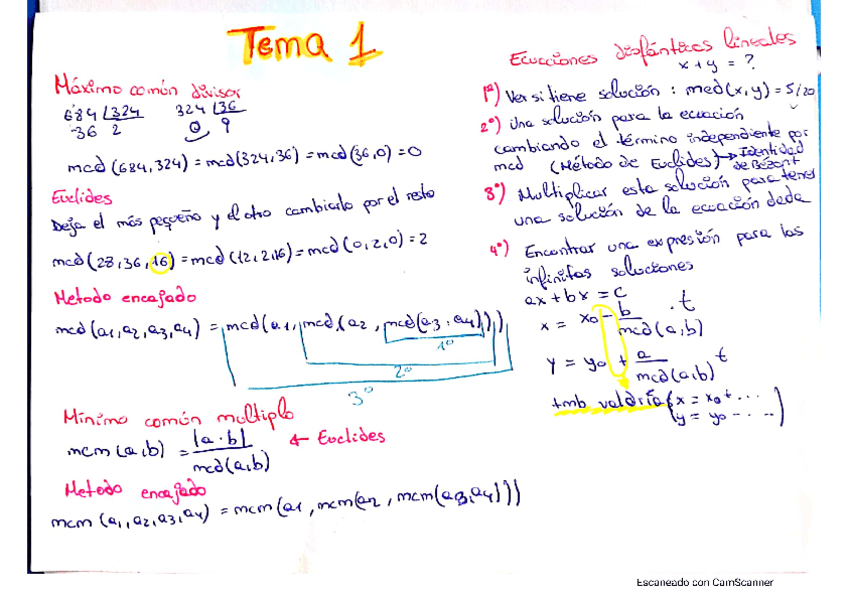 Tema 1
Máximo común divisor
684 |324    324 |36
-36  2    0  9
mcd (684,324) = mcd(324,36) = mcd(36,0) = 0
Euclides
Deja el más pequeño y el otro cambiarlo por el resto
mcd(28,36,16) = mcd(12,2,16) = mcd(0,2,0) = 2
Metodo encajado
mcd(a1,a2,a3,a4) = mcd(a1, mcd(a2, mcd(a3,a4)))
1º
2º
3º
Mínimo común multiplo
mcm (a,b) = |a·b| / mcd(a,b) ← Euclides
Metodo encajado
mcm (a1,a2,a3,a4) = mcm(a1, mcm(a2, mcm(a3,a4)))
Ecucciones diofánticas lineales
x + y = ?
1º) Ver si tiene solución : med(x,y) = 5/20
2º) Una solución para la ecuación
cambiando el término independiente por
mcd (Método de Euclides) → Identidad
de Bézout
3º) Multiplicar esta solución para tener
una solución de la ecuación dada
4º) Encontrar una expresión para las
infinitas soluciones
ax + bx = c
x = x0 - b / mcd(a,b) · t
y = y0 + a / mcd(a,b) t
tmb valdría (x = x0 + ...
y = y0 - ... )
Escaneado con CamScanner